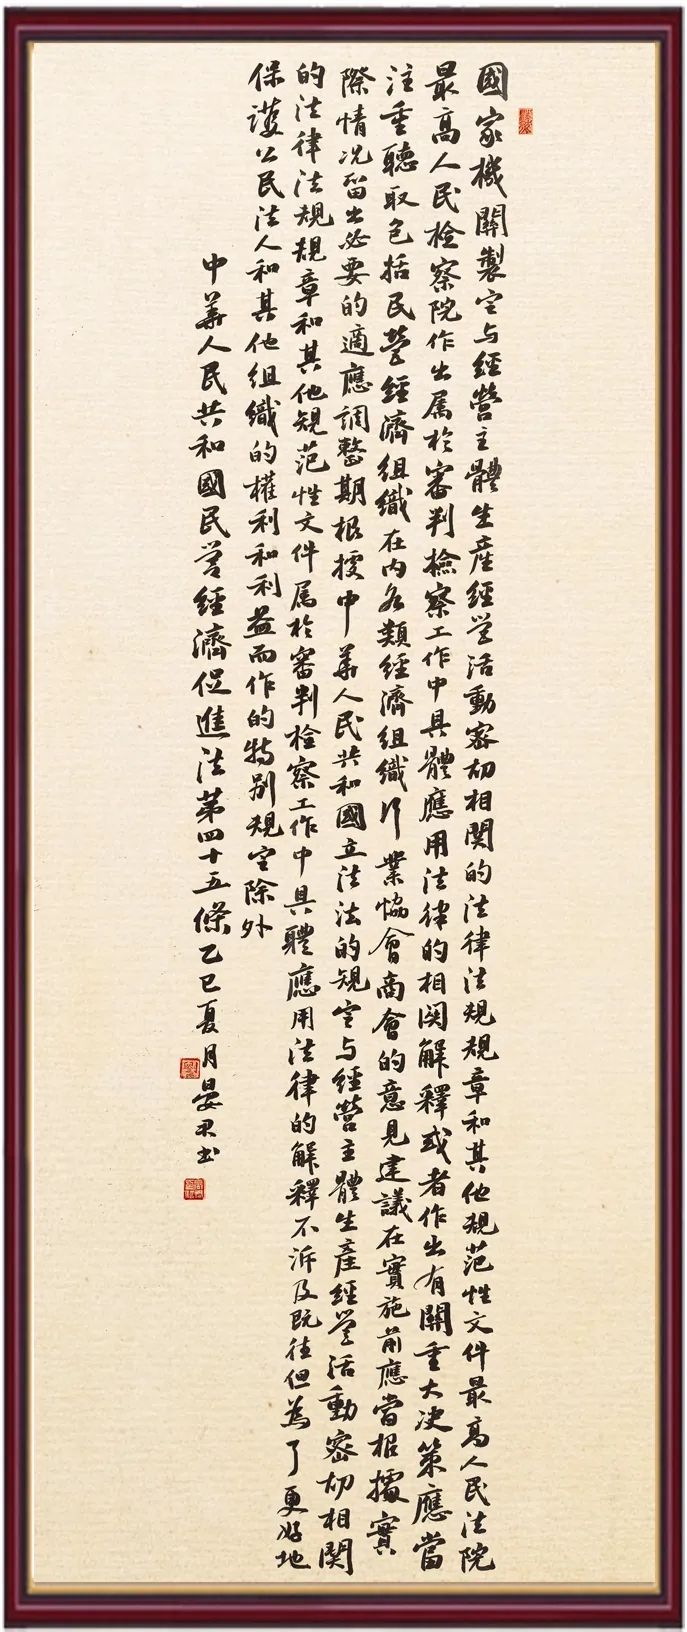 國家機關製定与經營主體生産經営活動密切相関的法律法規規章和其他規范性文件最高人民法院
最高人民檢察院作出属於審判檢察工作中具體應用法律的相関解釋或者作出有關重大决策應當
注重聽取包括民營經濟組織在内各類經濟組織行業協會商會的意見建議在實施前應當根據實
際情况留出必要的適應調整期根據中華人民共和國立法法的規定与經營主體生産經営活動密切相関
的法律法規規章和其他規范性文件属於審判檢察工作中具體應用法律的解釋不泝及既往但為了更好地
保護公民法人和其他組織的權利和利益而作的特别規定除外
中華人民共和國民营經濟促進法第四十五條乙巳夏月晏君书